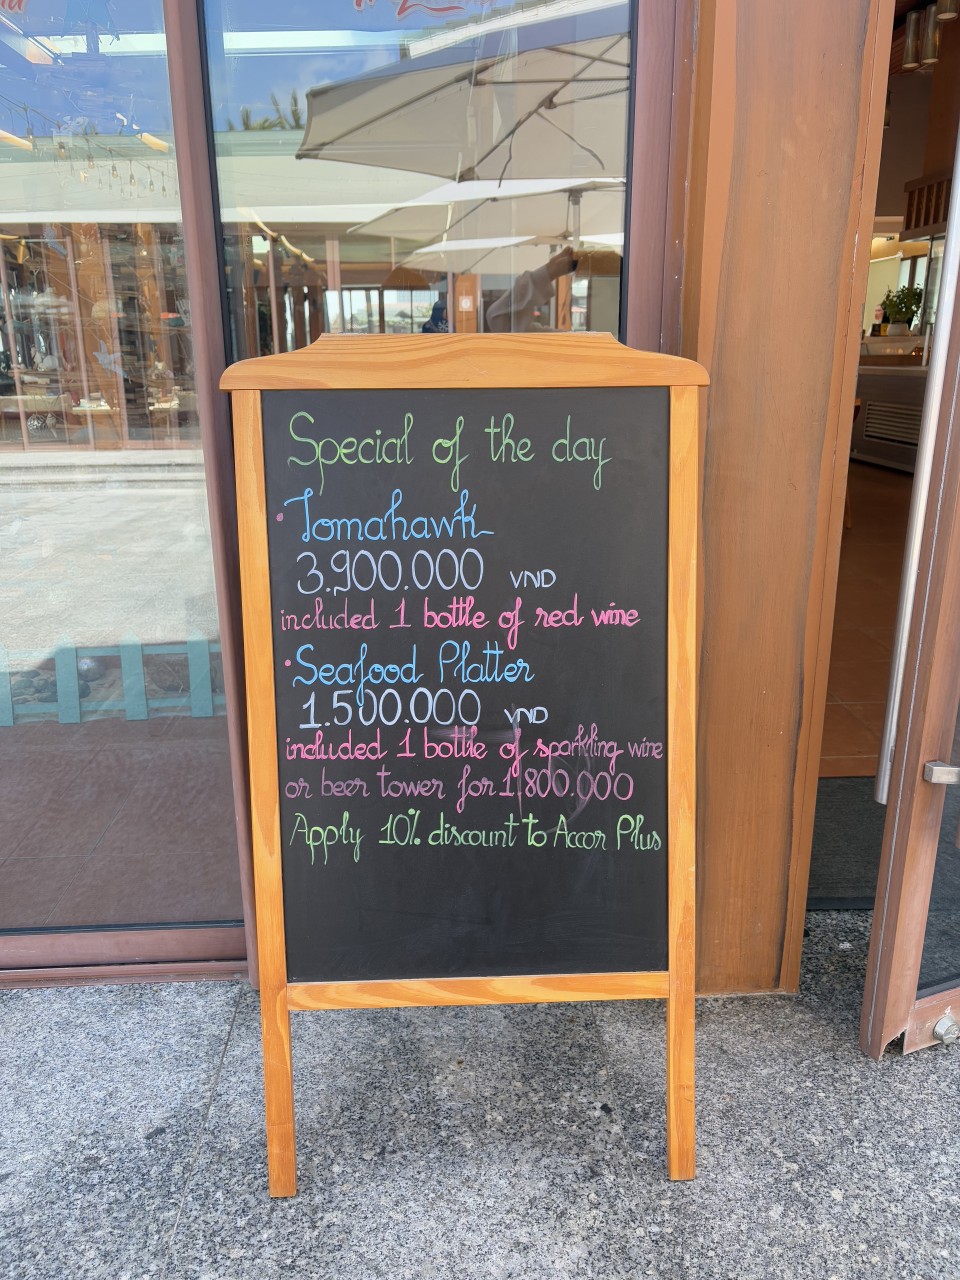 Special of the day
• Tomahawk
3.900.000 VND
included 1 bottle of red wine
• Seafood Platter
1.500.000 VND
included 1 bottle of sparkling wine
or beer tower for 1.800.000
Apply 10% discount to Accor Plus